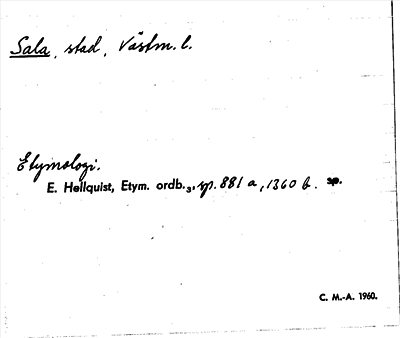 Sala, stad, Västm. l.
Etymologi.
E. Hellquist, Etym. ordb.₃, sp. 881 a, 1360 b. sp.
C. M.-A. 1960.